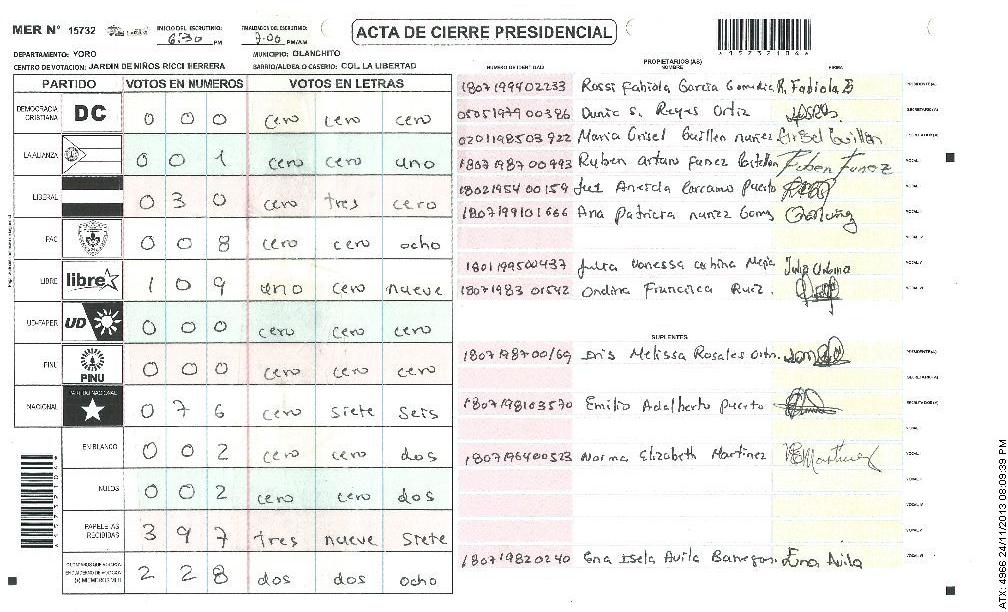 MER N° 15732 INICIO DEL ESCRUTINIO: 6:30 PM FINALIZACION DEL ESCRUTINIO: 7:00 PM/AM ACTA DE CIERRE PRESIDENCIAL
DEPARTAMENTO: YORO MUNICIPIO: OLANCHITO
CENTRO DE VOTACION: JARDIN DE NIÑOS RICCI HERRERA BARRIO/ALDEA O CASERIO: COL. LA LIBERTAD
PARTIDO VOTOS EN NUMEROS VOTOS EN LETRAS
DEMOCRACIA CRISTIANA DC 0 0 0 cero cero cero
LA ALIANZA 0 0 1 cero cero uno
LIBERAL 0 3 0 cero tres cero
PAC 0 0 8 cero cero ocho
LIBRE libre 1 0 9 uno cero nueve
UD-FAPER UD 0 0 0 cero cero cero
PINU PINU 0 0 0 cero cero cero
NACIONAL PARTIDO NACIONAL 0 7 6 cero siete seis
EN BLANCO 0 0 2 cero cero dos
NULOS 0 0 2 cero cero dos
PAPELETAS RECIBIDAS 3 9 7 tres nueve siete
2 2 8 dos dos ocho
PROPIETARIOS (AS)
NUMERO DE IDENTIDAD NOMBRE FIRMA
1807199402233 Rossi Fabiola Garcia R. Fabiola PRESIDENTE(A)
0505197900386 S. Reyes Ortiz SECRETARIO(A)
0201198503922 Maria Grisel Guillen nuñez Grisel Guillen
1807198700993 Ruben arturo funez Ruben Funez VOCAL I
1802195400159 puerto
1807199101666 Ana patricia nunez
1801199500437 Julia Vanessa
1807198301542 Ondina Francisca Ruiz.
SUPLENTES
1807198700169 Iris Melissa Rosales PRESIDENTE(A)
SECRETARIO(A)
1807198103570 Emilio Adalberto puerto
1807196400523 Norma Elizabeth Martinez
180719820240 Ena Isela Avila Banegas. Ena Avila
ATX: 4966 24/11/2013 08:09:39 PM